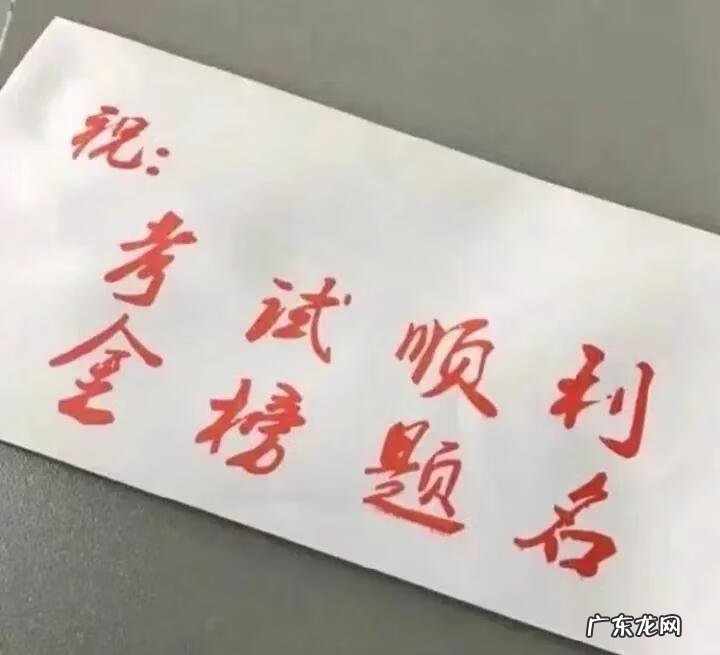 祝:
考试顺利
金榜题名
广东龙网